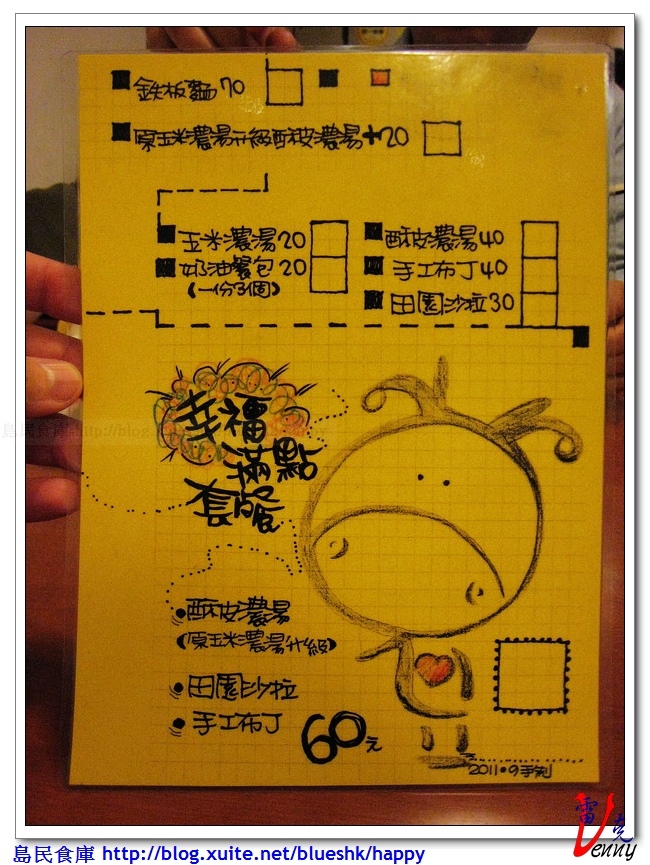 鉄板麵70
原玉米濃湯升級酥皮濃湯+20
玉米濃湯20
奶油餐包20
(一份3個)
酥皮濃湯40
手工布丁40
田園沙拉30
幸福
滿點
套餐
酥皮濃湯
(原玉米濃湯升級)
田園沙拉
手工布丁
60元
2011.9手刻
島民食庫 http://blog.xuite.net/blueshk/happy
雷克
Venny